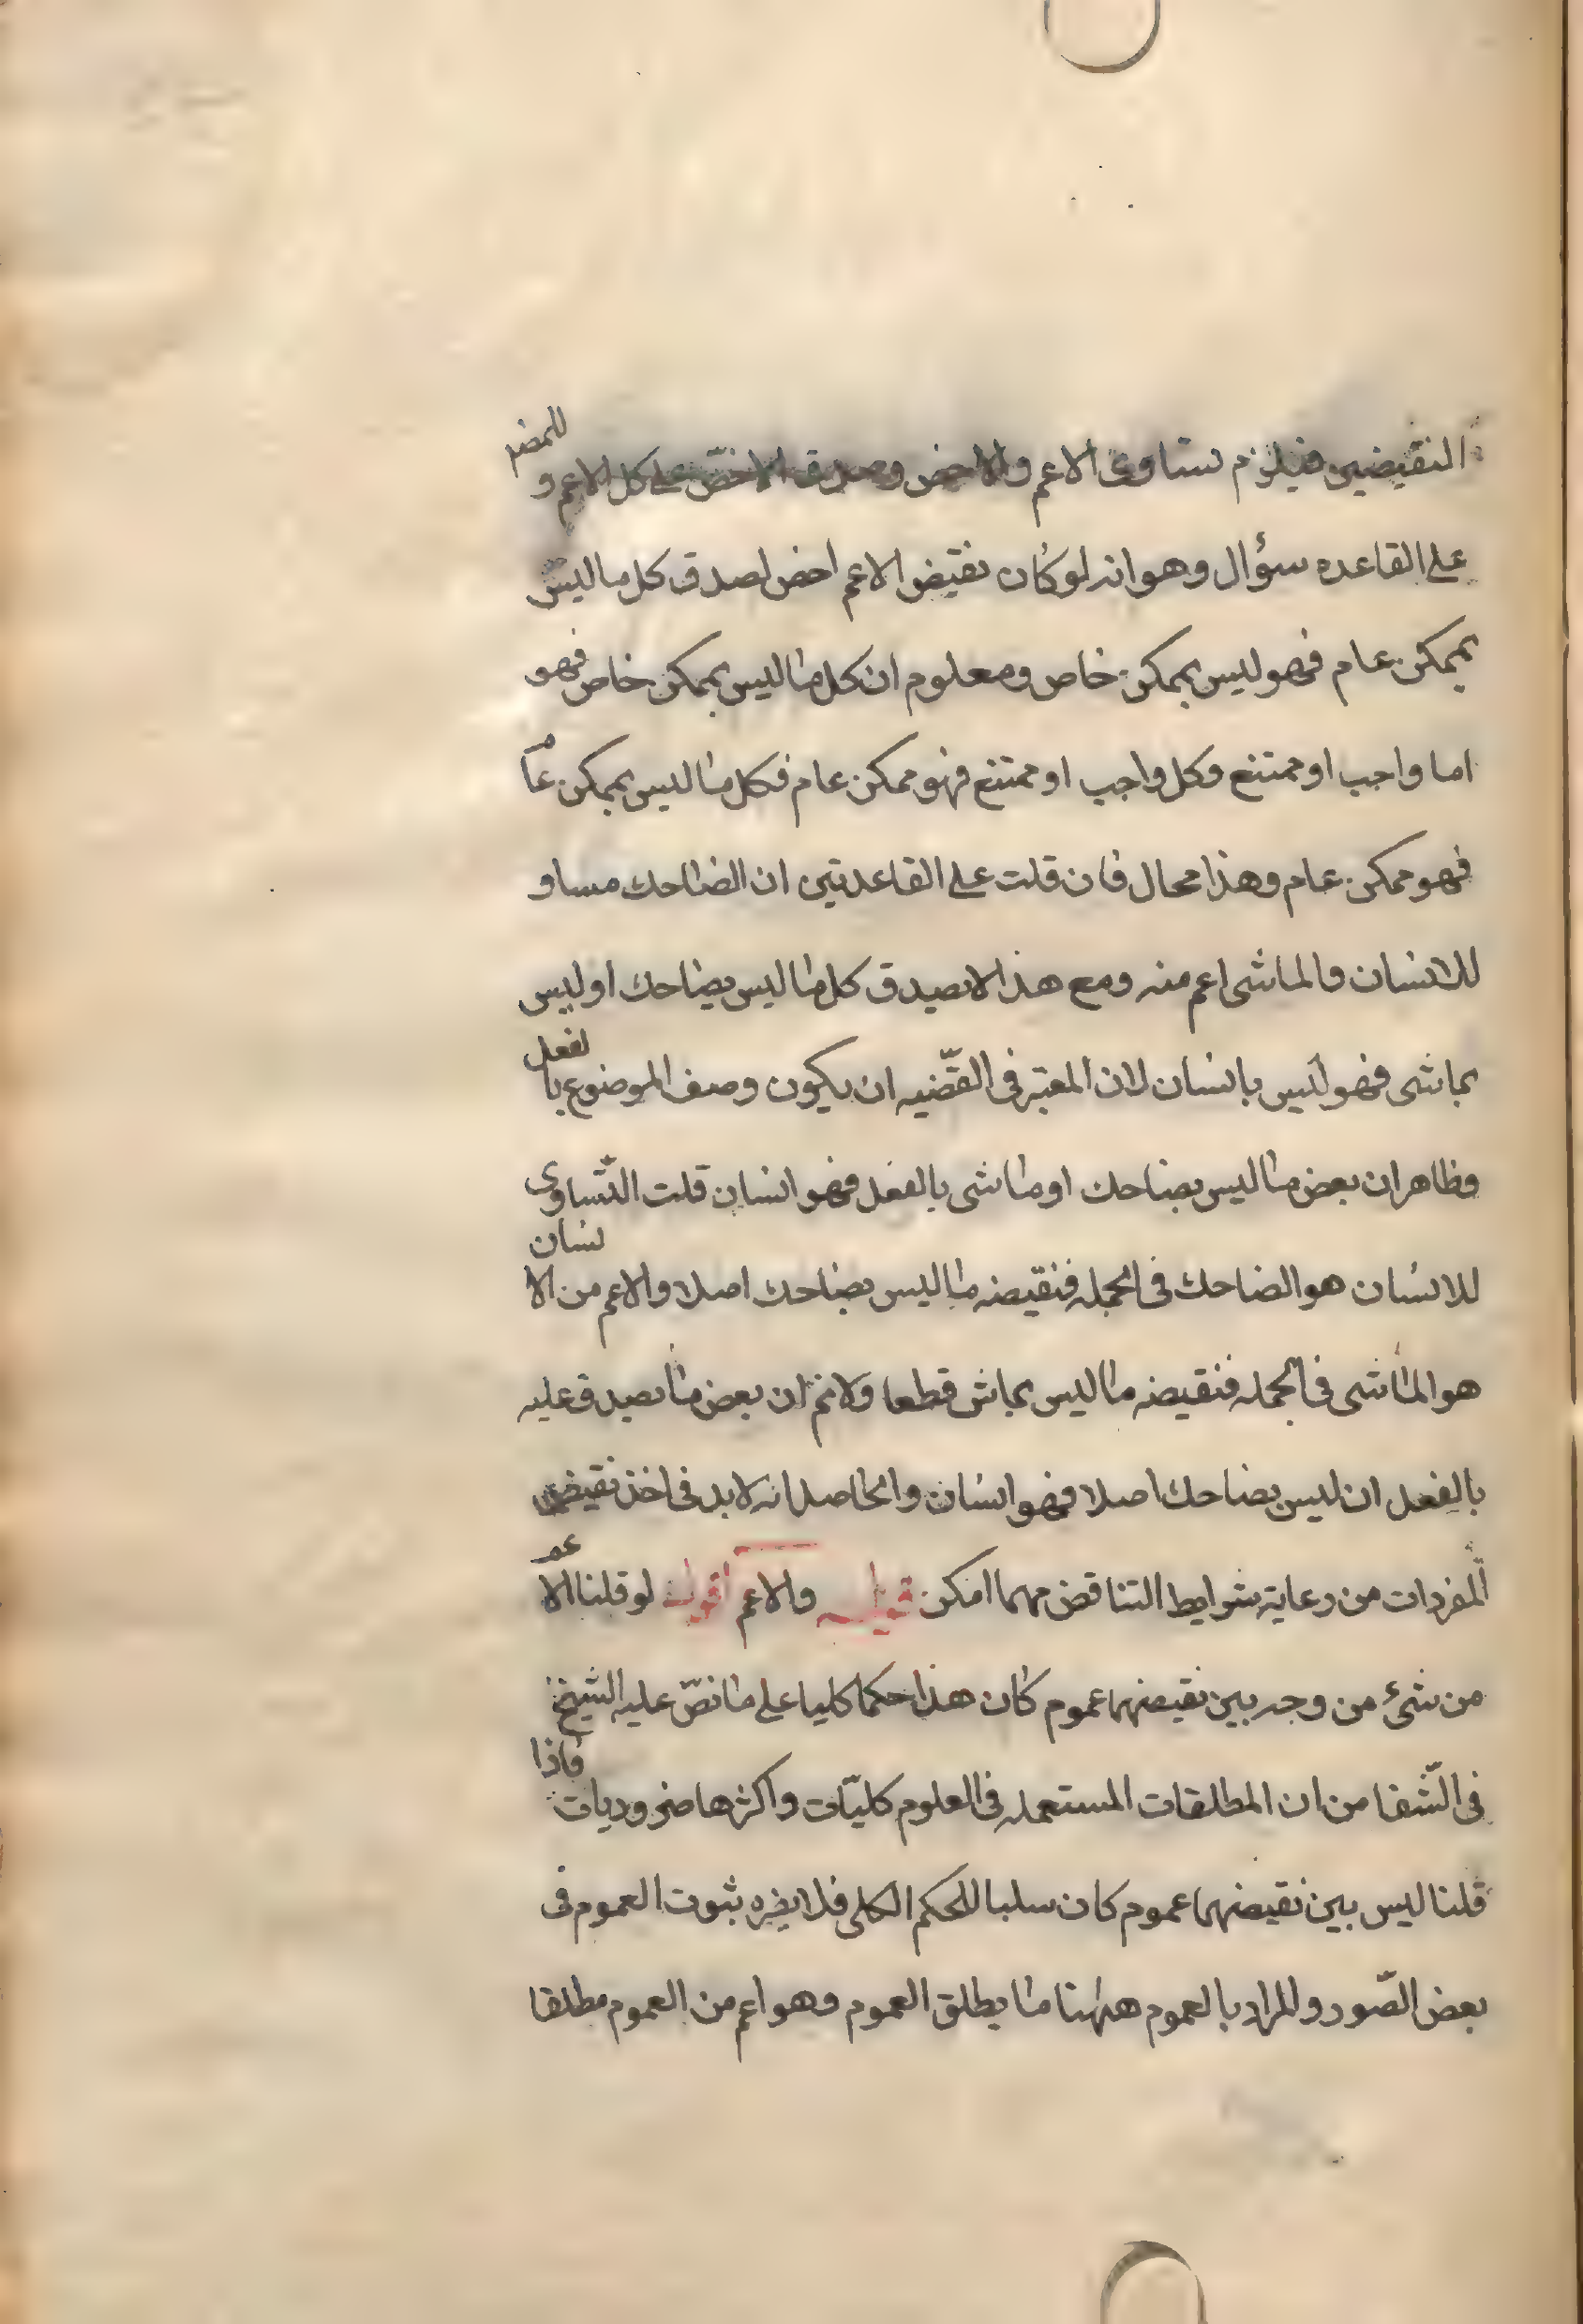 النقيضين فيلزم تساوى الاعم والاخص وصدق الاخصّ على كل الاعم و للمصر
على القاعده سؤال وهو انه لو كان نقيض الاعم اخص لصدق كل ما ليس
بممكن عام فهو ليس بممكن خاص ومعلوم ان كل ما ليس بممكن خاص فهو
اما واجب او ممتنع وكل واجب او ممتنع فهو ممكن عام فكل ما ليس بممكن عام
فهو ممكن عام وهذا محال فان قلت على القاعدتين ان الضاحك مساو
للانسان والماشى اعم منه ومع هذا لا يصدق كل ما ليس بضاحك او ليس
بماشى فهو ليس بانسان لان المعتبر فى القضّيه ان يكون وصف الموضوع بالفعل
وظاهر ان بعض ما ليس بضاحك او ماشى بالفعل فهو انسان قلت التّساوى
للانسان هو الضاحك فى الجمله فنقيضه ما ليس بضاحك اصلا والاعم من الانسان
هو الماشى فى الجمله فنقيضه ما ليس بماش قطعا ولانم ان بعض ما يصدق عليه
بالفعل ان ليس بضاحك اصلا فهو انسان والحاصل انه لا بد فى اخذ نقيض
المفردات من رعاية شرايط التناقض مهما امكن قوله والاعم اقول لو قلنا الاعم
من شئ من وجه بين نقيضهما عموم كان هذا حكما كليا على ما نصّ عليه الشيخ
فى الشّفا من ان المطلقات المستعمله فى العلوم كليّات واكثرها ضروريات فاذا
قلنا ليس بين نقيضهما عموم كان سلبا للحكم الكلى فلا يضره ثبوت العموم فى
بعض الصّور والمراد بالعموم ههنا ما يطلق العموم وهو اعم من العموم مطلقا